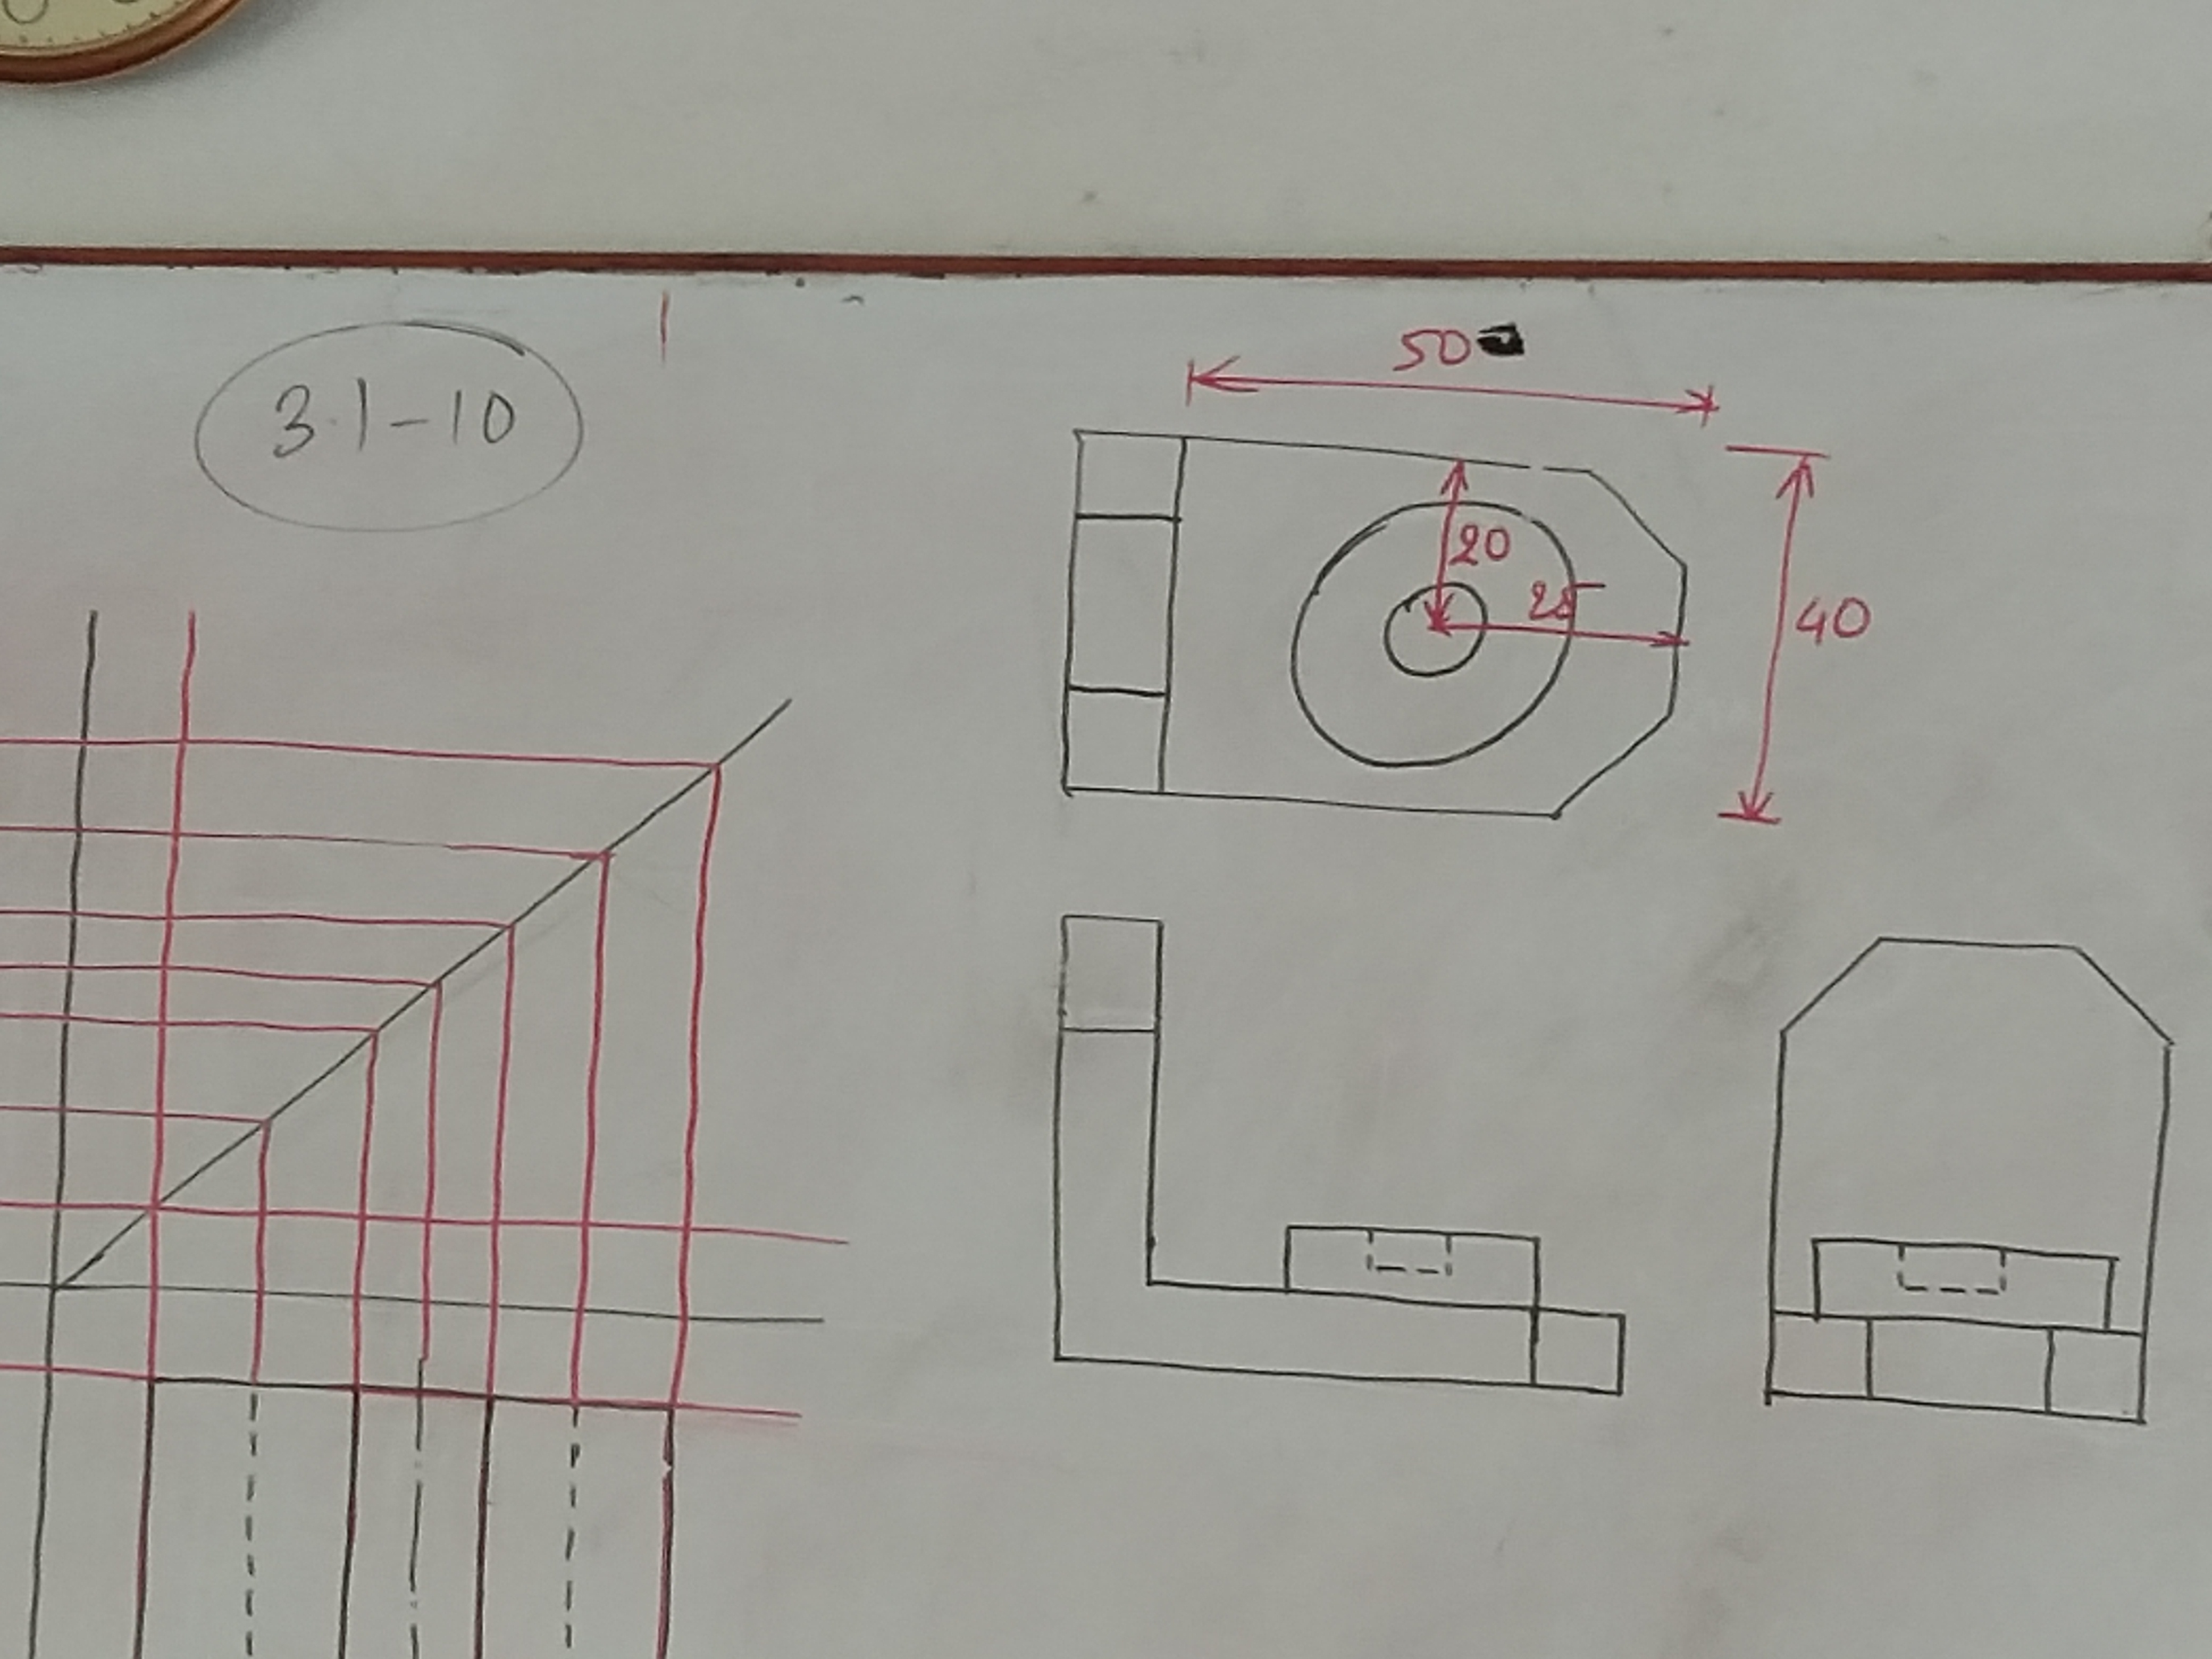 3.1-10
50
20
25
40